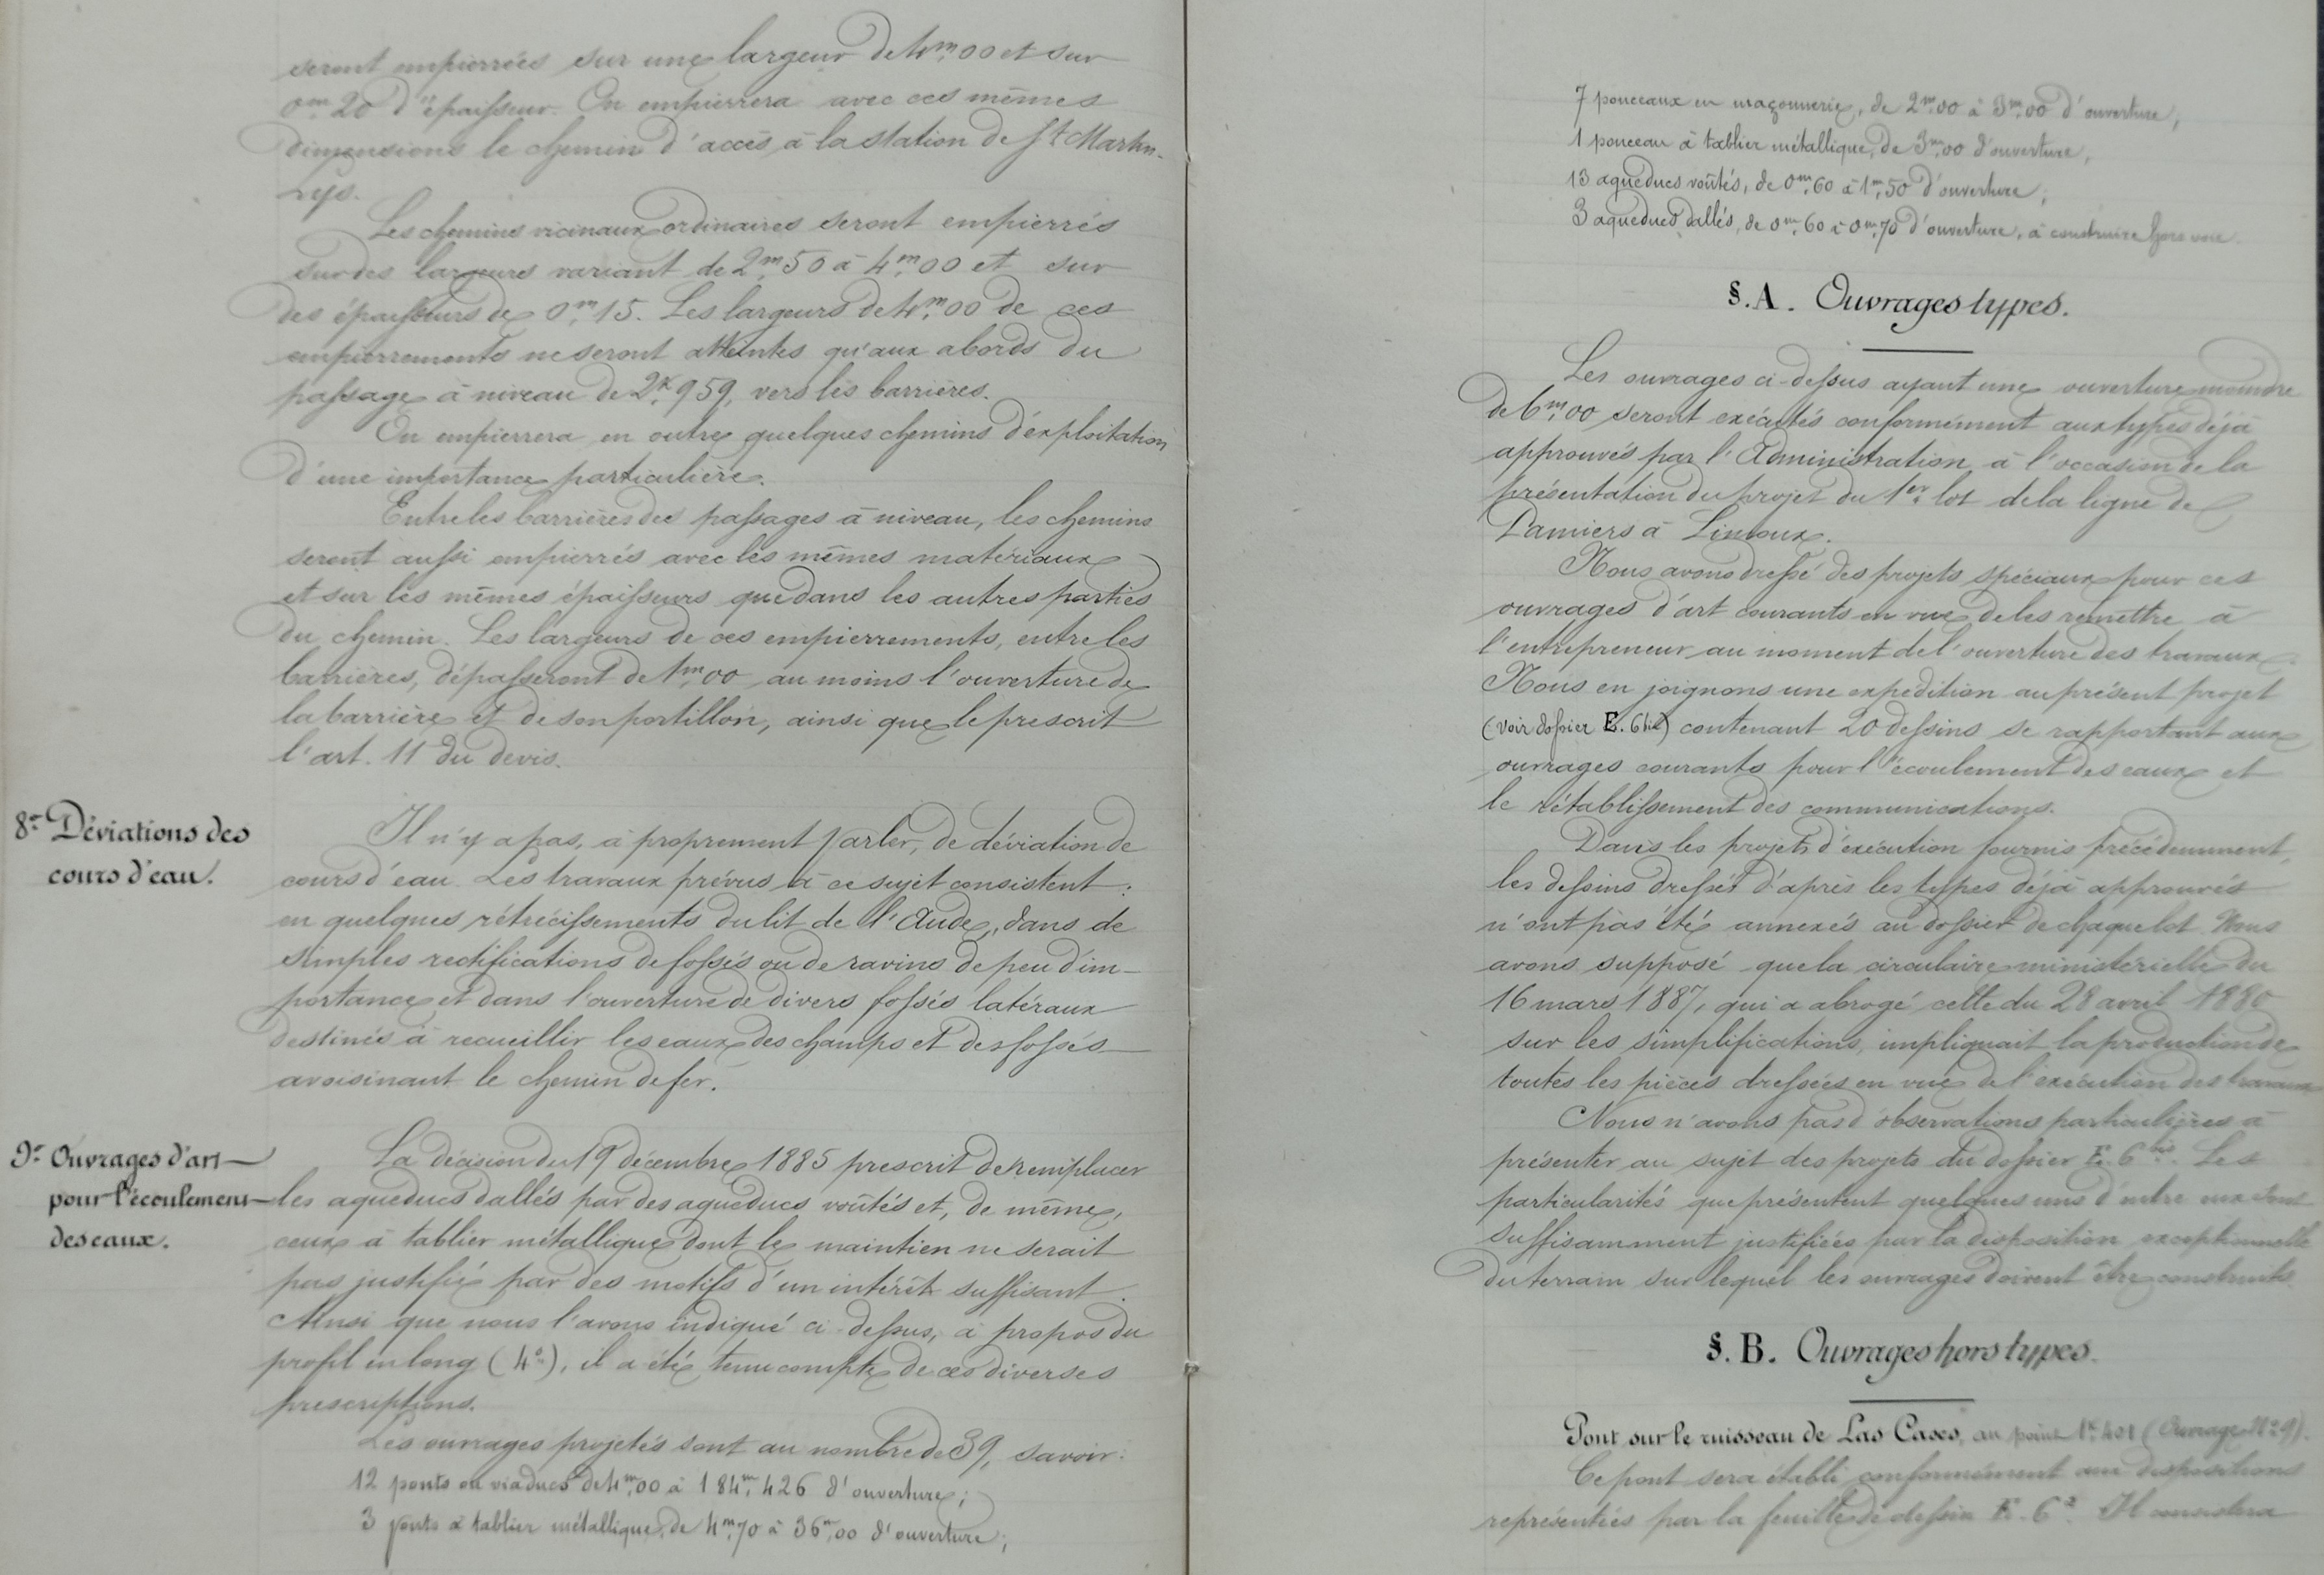 seront empierrées sur une largeur de 4m,00 et sur
0m,20 d'épaisseur. On empierrera avec ces mêmes
dimensions le chemin d'accès à la station de St Martin-
Lys.
Les chemins vicinaux ordinaires seront empierrés
sur des largeurs variant de 2m,50 à 4m,00 et sur
des épaisseurs de 0m,15. Les largeurs de 4m,00 de ces
empierrements ne seront atteintes qu'aux abords du
passage à niveau de 2k,959, vers les barrières.
On empierrera en outre quelques chemins d'exploitation
d'une importance particulière.
Entre les barrières des passages à niveau, les chemins
seront aussi empierrés avec les mêmes matériaux
et sur les mêmes épaisseurs que dans les autres parties
du chemin. Les largeurs de ces empierrements, entre les
barrières, dépasseront de 1m,00 au moins l'ouverture de
la barrière et de son portillon, ainsi que le prescrit
l'art. 11 du devis.
8° Déviations des
cours d'eau.
Il n'y a pas, à proprement parler, de déviation de
cours d'eau. Les travaux prévus à ce sujet consistent :
en quelques rétrécissements du lit de l'Aude, dans de
simples rectifications de fossés ou de ravins de peu d'im-
portance et dans l'ouverture de divers fossés latéraux
destinés à recueillir les eaux des champs et des fossés
avoisinant le chemin de fer.
9° Ouvrages d'art
pour l'écoulement
des eaux.
La décision du 19 décembre 1885 prescrit de remplacer
les aqueducs dallés par des aqueducs voûtés et, de même,
ceux à tablier métallique dont le maintien ne serait
pas justifié par des motifs d'un intérêt suffisant.
Ainsi que nous l'avons indiqué ci-dessus, à propos du
profil en long (4°), il a été tenu compte de ces diverses
prescriptions.
Les ouvrages projetés sont au nombre de 39, savoir :
12 ponts ou viaducs de 4m,00 à 184m,426 d'ouverture ;
3 ponts à tablier métallique, de 4m,70 à 36m,00 d'ouverture ;
7 ponceaux en maçonnerie, de 2m,00 à 3m,00 d'ouverture,
1 ponceau à tablier métallique, de 3m,00 d'ouverture,
13 aqueducs voûtés, de 0m,60 à 1m,50 d'ouverture ;
3 aqueducs dallés, de 0m,60 à 0m,70 d'ouverture, à construire hors voie.
§. A. Ouvrages types.
Les ouvrages ci-dessus ayant une ouverture moindre
de 6m,00 seront exécutés conformément aux types déjà
approuvés par l'Administration à l'occasion de la
présentation du projet du 1er lot de la ligne de
Pamiers à Limoux.
Nous avons dressé des projets spéciaux pour ces
ouvrages d'art courants en vue de les remettre à
l'entrepreneur au moment de l'ouverture des travaux.
Nous en joignons une expédition au présent projet
(voir dossier E. 6 bis) contenant 20 dessins se rapportant aux
ouvrages courants pour l'écoulement des eaux et
le rétablissement des communications.
Dans les projets d'exécution fournis précédemment,
les dessins dressés d'après les types déjà approuvés
n'ont pas été annexés au dossier de chaque lot. Nous
avons supposé que la circulaire ministérielle du
16 mars 1887, qui a abrogé celle du 28 avril 1880
sur les simplifications, impliquait la production de
toutes les pièces dressées en vue de l'exécution des travaux.
Nous n'avons pas d'observations particulières à
présenter au sujet des projets du dossier E. 6 bis. Les
particularités que présentent quelques uns d'entre eux sont
suffisamment justifiées par la disposition exceptionnelle
du terrain sur lequel les ouvrages doivent être construits.
§. B. Ouvrages hors types.
Pont sur le ruisseau de Las Cases, au point 1k,401 (Ouvrage N° 9).
Ce pont sera établi conformément aux dispositions
représentées par la feuille de dessin E. 6 2. Il consistera